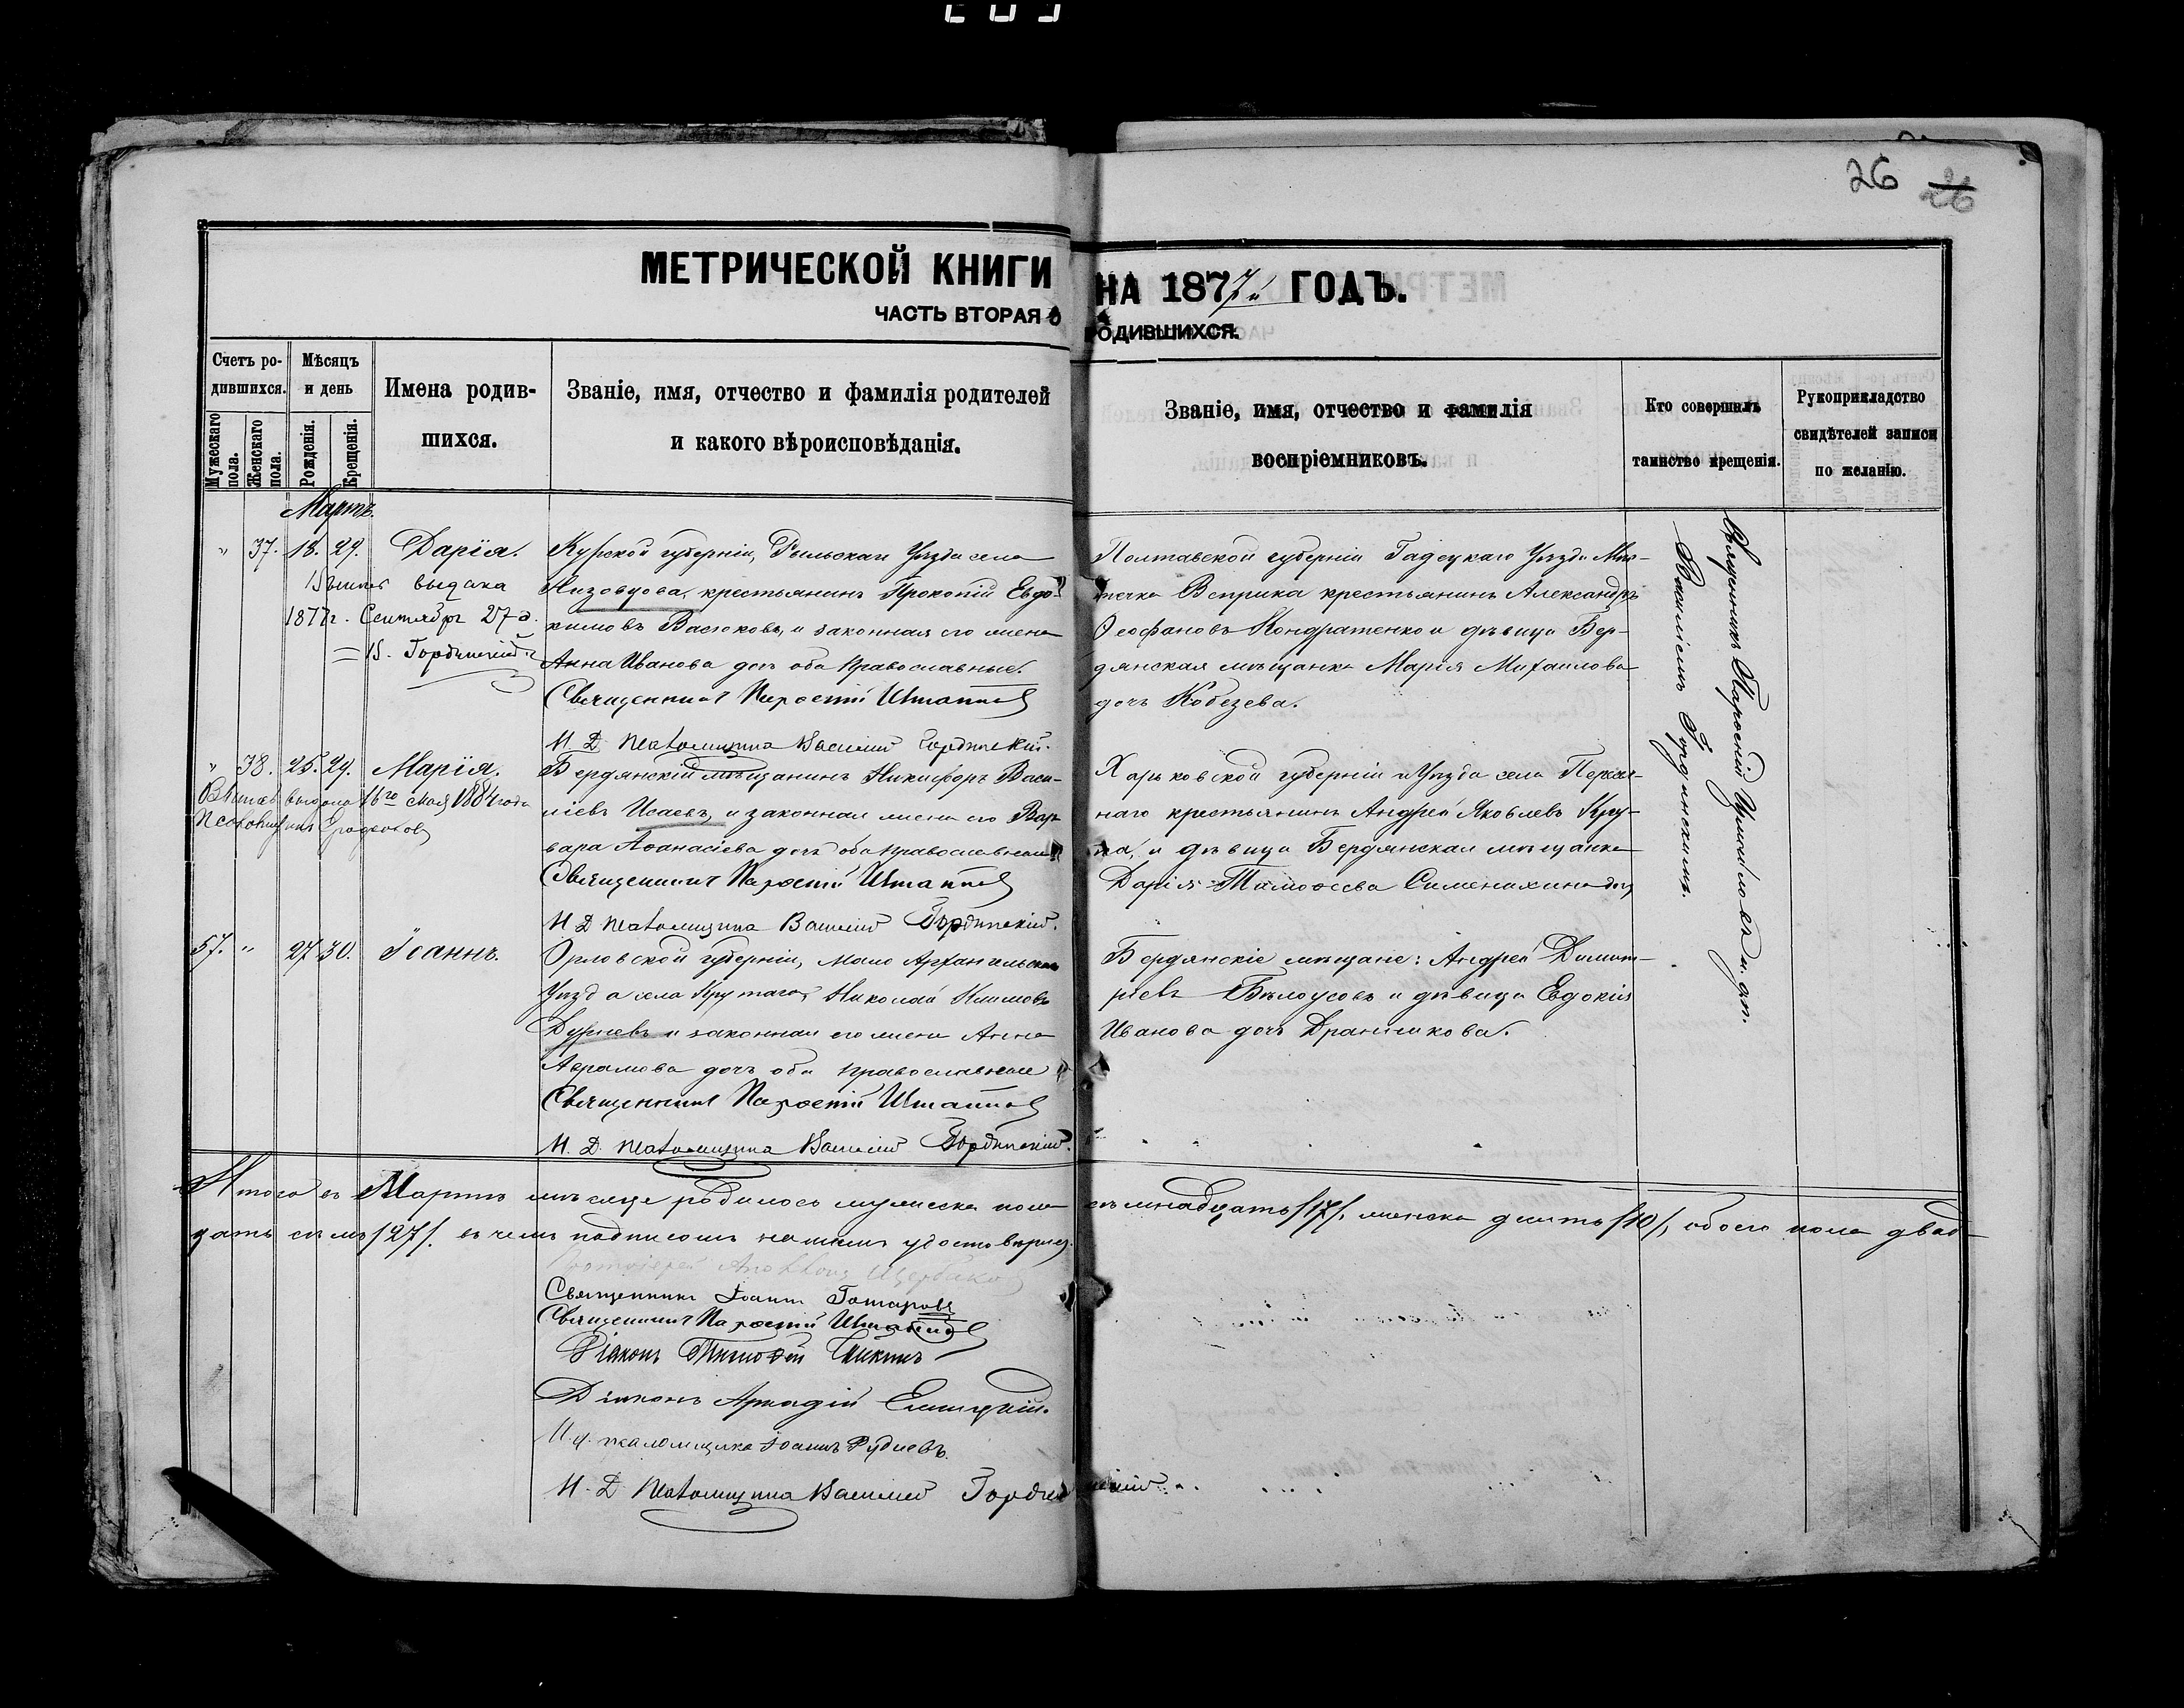 26 26
МЕТРИЧЕСКОЙ КНИГИ НА 1877й ГОДЪ.
ЧАСТЬ ВТОРАЯ О РОДИВШИХСЯ.
Счетъ родившихся.
Мужескаго пола.
Женскаго пола.
Мѣсяцъ и день
Рожденія.
Крещенія.
Имена родившихся.
Званіе, имя, отчество и фамилія родителей
и какого вѣроисповѣданія.
Званіе, имя, отчество и фамилія
воспріемниковъ.
Кто совершилъ
таинство крещенія.
Рукоприкладство
свидѣтелей записи
по желанію.
Мартъ.
" 37. 18. 29. Дарія.
выдана
1877г. Сентября 27 д.
В. Гординскій
Курской губерніи, Рыльскаго Уѣзда села
Низовцова, крестьянинъ Прокопій Евдо-
кимовъ Васюковъ, и законная его жена
Анна Иванова дочь оба православные.
Священникъ Парѳеній
И. Д. псаломщика Василій Гординскій.
Полтавской губерніи Гадецкаго Уѣзда Мѣс-
течка Веприка крестьянинъ Александръ
Ѳеофановъ Кондратенко и дѣвица Бер-
дянская мѣщанка Марія Михаилова
дочь Кобезева.
Священникъ Парѳеній
Василіемъ Гординскимъ.
" 38. 25. 29. Марія.
выдана 16го Мая 1884 года
Бердянскій мѣщанинъ Никифоръ Васи-
ліевъ Исаевъ, и законная жена его Вар-
вара Аѳанасіева дочь оба православные
Священникъ Парѳеній
И Д псаломщика Василій Гординскій.
Харьковской губерніи и Уѣзда села
наго крестьянинъ Андрей Яковлевъ Кру-
, и дѣвица Бердянская мѣщанка
Дарія Тимоѳеева дочь
57. " 27 30. Іоаннъ.
Орловской губерніи, Мало Архангельскаго
Уѣзда села Крутаго, Николай Климовъ
Дурневъ и законная его жена Анна
Аврамова дочь оба православные
Священникъ Парѳеній
И. Д. псаломщика Василій Гординскій.
Бердянскіе мѣщане: Андрей Димит-
ріевъ Бѣлоусовъ и дѣвица Евдокія
Иванова дочь Дранникова.
Итого въ Мартѣ мѣсяцѣ родилось мужеска пола семнадцать /17/, женска десять /10/, обоего пола двад-
цать семь /27/. въ чемъ подписомъ нашимъ удостовѣряемъ
Протоіерей
Священникъ Іоаннъ Гончаровъ
Священникъ Парѳеній
Діаконъ Тимоѳей
Діаконъ Аркадій
И. д. псаломщика Іоаннъ Рудневъ.
И. Д псаломщика Василій Гординскій